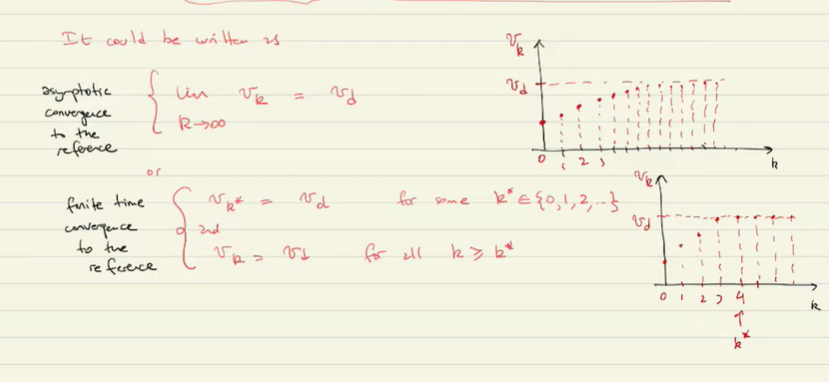 It could be written as
asymptotic
convergence
to the
reference
lim v_k = v_d
k→∞
or
finite time
convergence
to the
reference
v_k* = v_d for some k* ∈ {0,1,2,..}
and
v_k = v_d for all k ≥ k*
v_k
v_d
0 1 2 3
k
v_k
v_d
0 1 2 3 4
k
↑
k*